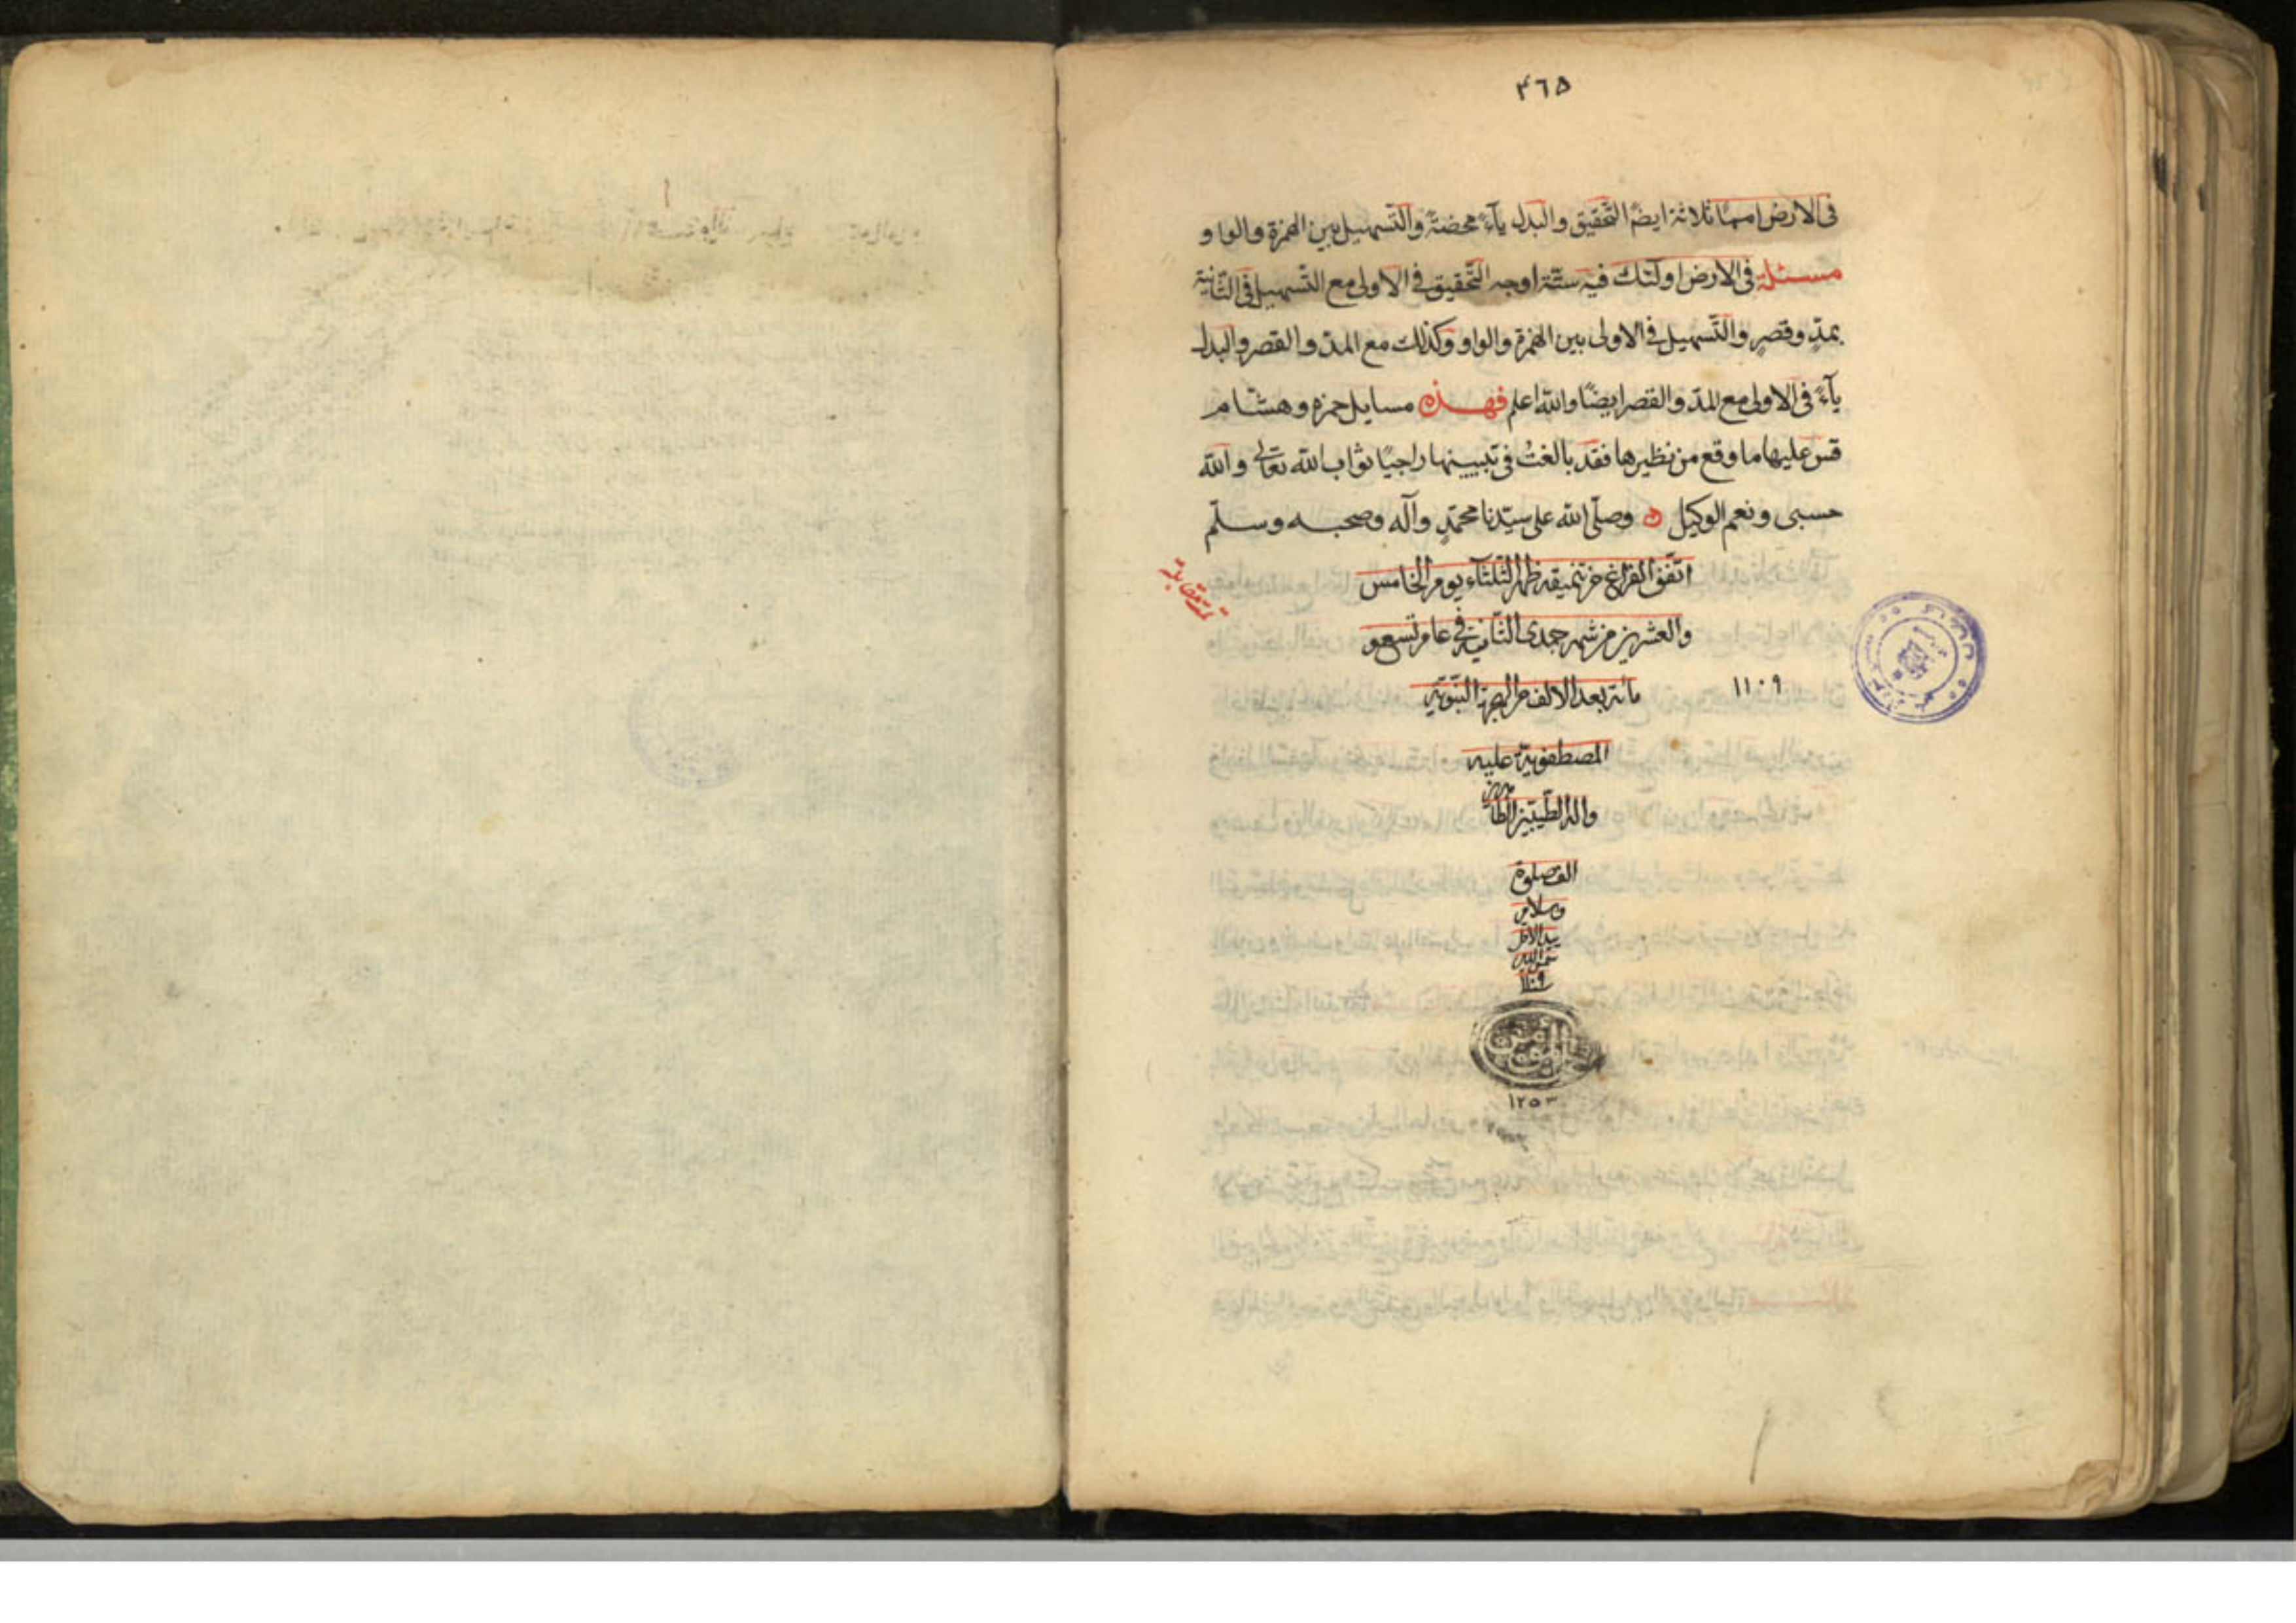 ٣٦٥
فى الارض امما ثلاثة ايضًا التّحقيق والبدل يآءً محضةً والتّسهيل بين الهمزة والواو
مسئلة فى الارض اولئك فيه ستّة اوجه التّحقيق فى الاولى مع التّسهيل فى الثّانية
بمدٍّ وقصرٍ والتّسهيل فى الاولى بين الهمزة والواو وكذلك مع المدّ والقصر والبدل
يآءً فى الاولى مع المدّ والقصر ايضًا والله اعلم فهذه مسايل حمزه وهشام
قس عليها ما وقع من نظيرها فقد بالغتُ فى تبيينها راجيًا ثواب الله تعالى والله
حسبى ونعم الوكيل وصلّى الله على سيّدنا محمّدٍ وآله وصحبه وسلّم
اتّفق الفراغ من تنميقه ظهر الثّلثآء يوم الخامس
والعشرين من شهر جمدى الثّانية فى عام تسع و
مائة بعد الالف من الهجرة النّبويّة
١١٠٩
المصطفويّة عليه
وآله الطّيّبين الطاهرين
الف صلوة
وسلام
بيد الاقل
١١٠٩
١٢٥٣